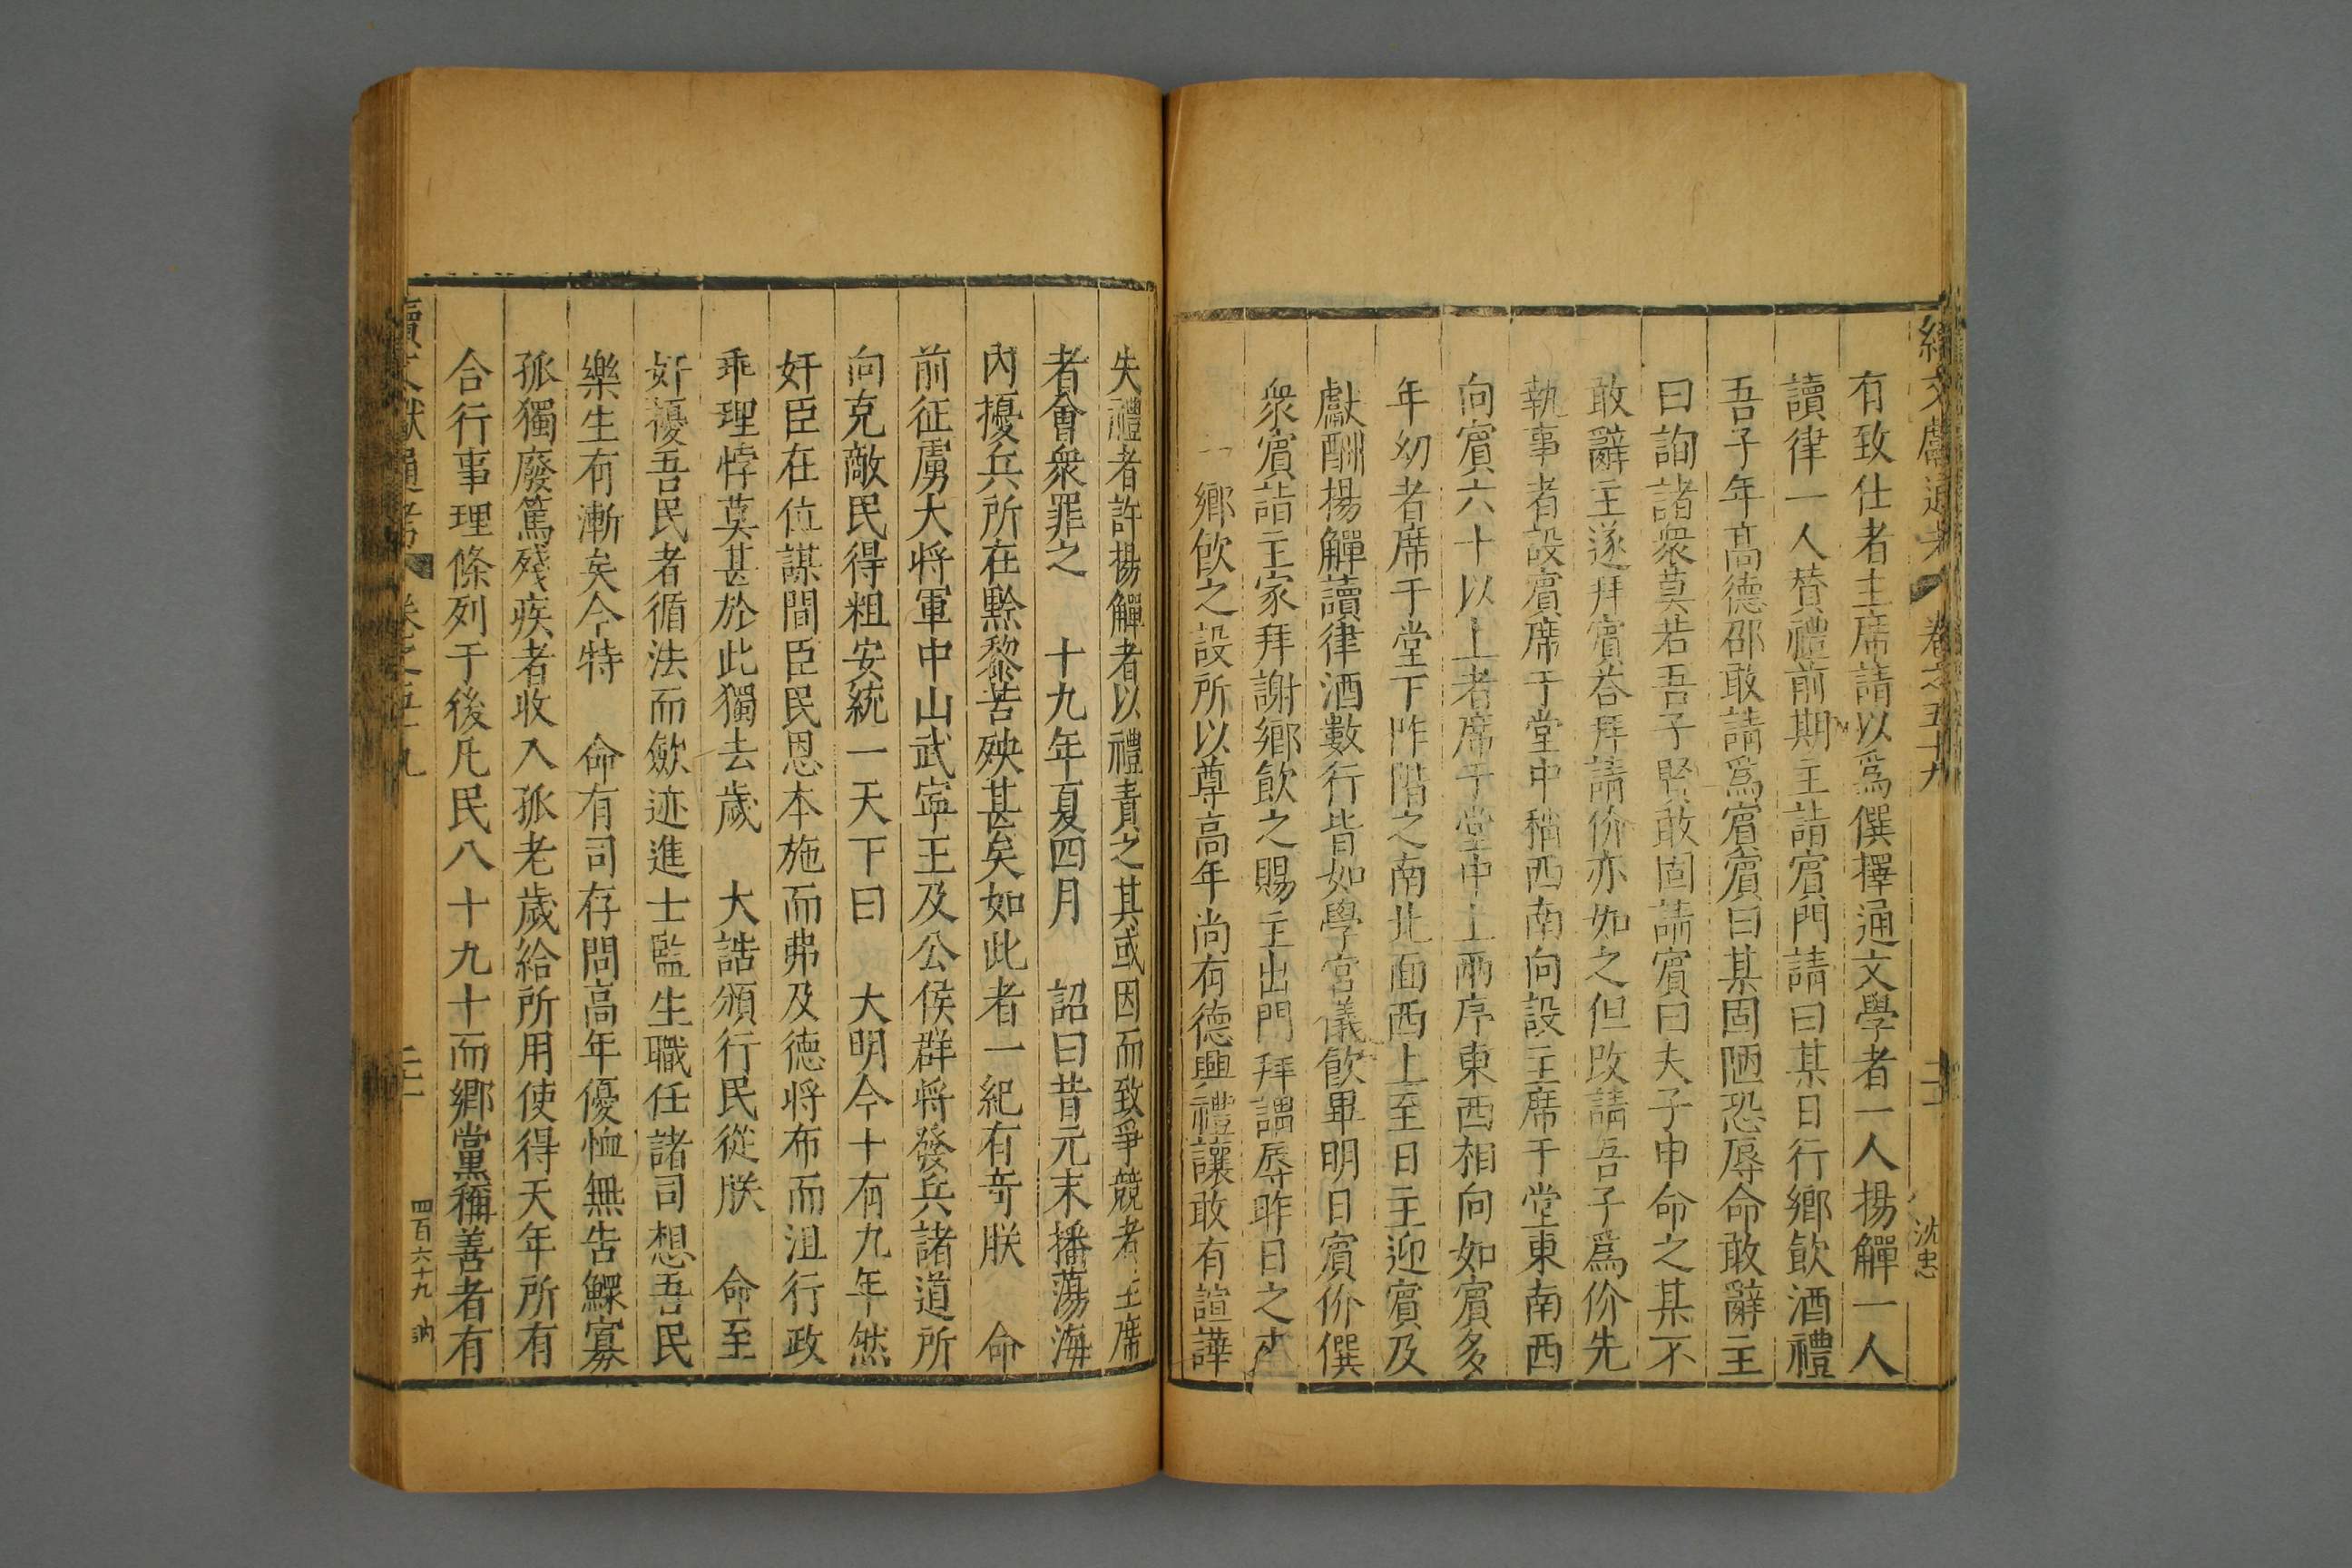 續文獻通考 卷之五十九 沈忠
有致仕者主席請以爲僎擇通文學者一人揚觶一人
讀律一人贊禮前期主詣賓門請曰某日行鄉飲酒禮
吾子年高德邵敢請爲賓賓曰某固陋恐辱命敢辭主
曰詢諸衆莫若吾子賢敢固請賓曰夫子申命之某不
敢辭主遂拜賓荅拜請价亦如之但改請吾子爲价先
執事者設賓席于堂中稍西南向設主席于堂東南西
向賓六十以上者席于堂中上兩序東西相向如賓多
年幼者席于堂下阼階之南北面西上至日主迎賓及
獻酬揚觶讀律酒數行皆如學宮儀飲畢明日賓价僎
衆賓詣主家拜謝鄉飲之賜主出門拜謁辱昨日之
一鄉飲之設所以尊高年尚有德興禮讓敢有諠譁
失禮者許揚觶者以禮責之其或因而致爭競者主席
者會衆罪之 十九年夏四月 詔曰昔元末播蕩海
內擾兵所在黔黎苦殃甚矣如此者一紀有奇朕 命
前征虜大將軍中山武寧王及公侯群將發兵諸道所
向克敵民得粗安統一天下曰 大明今十有九年然
奸臣在位謀間臣民恩本施而弗及德將布而沮行政
乖理悖莫甚於此獨去歲 大誥頒行民從朕 命至
奸擾吾民者循法而斂迹進士監生職任諸司想吾民
樂生有漸矣今特 命有司存問高年優恤無告鰥寡
孤獨廢篤殘疾者收入孤老歲給所用使得天年所有
合行事理條列于後凡民八十九十而鄉黨稱善者有
續文獻通考 卷之五十九 四百六十九